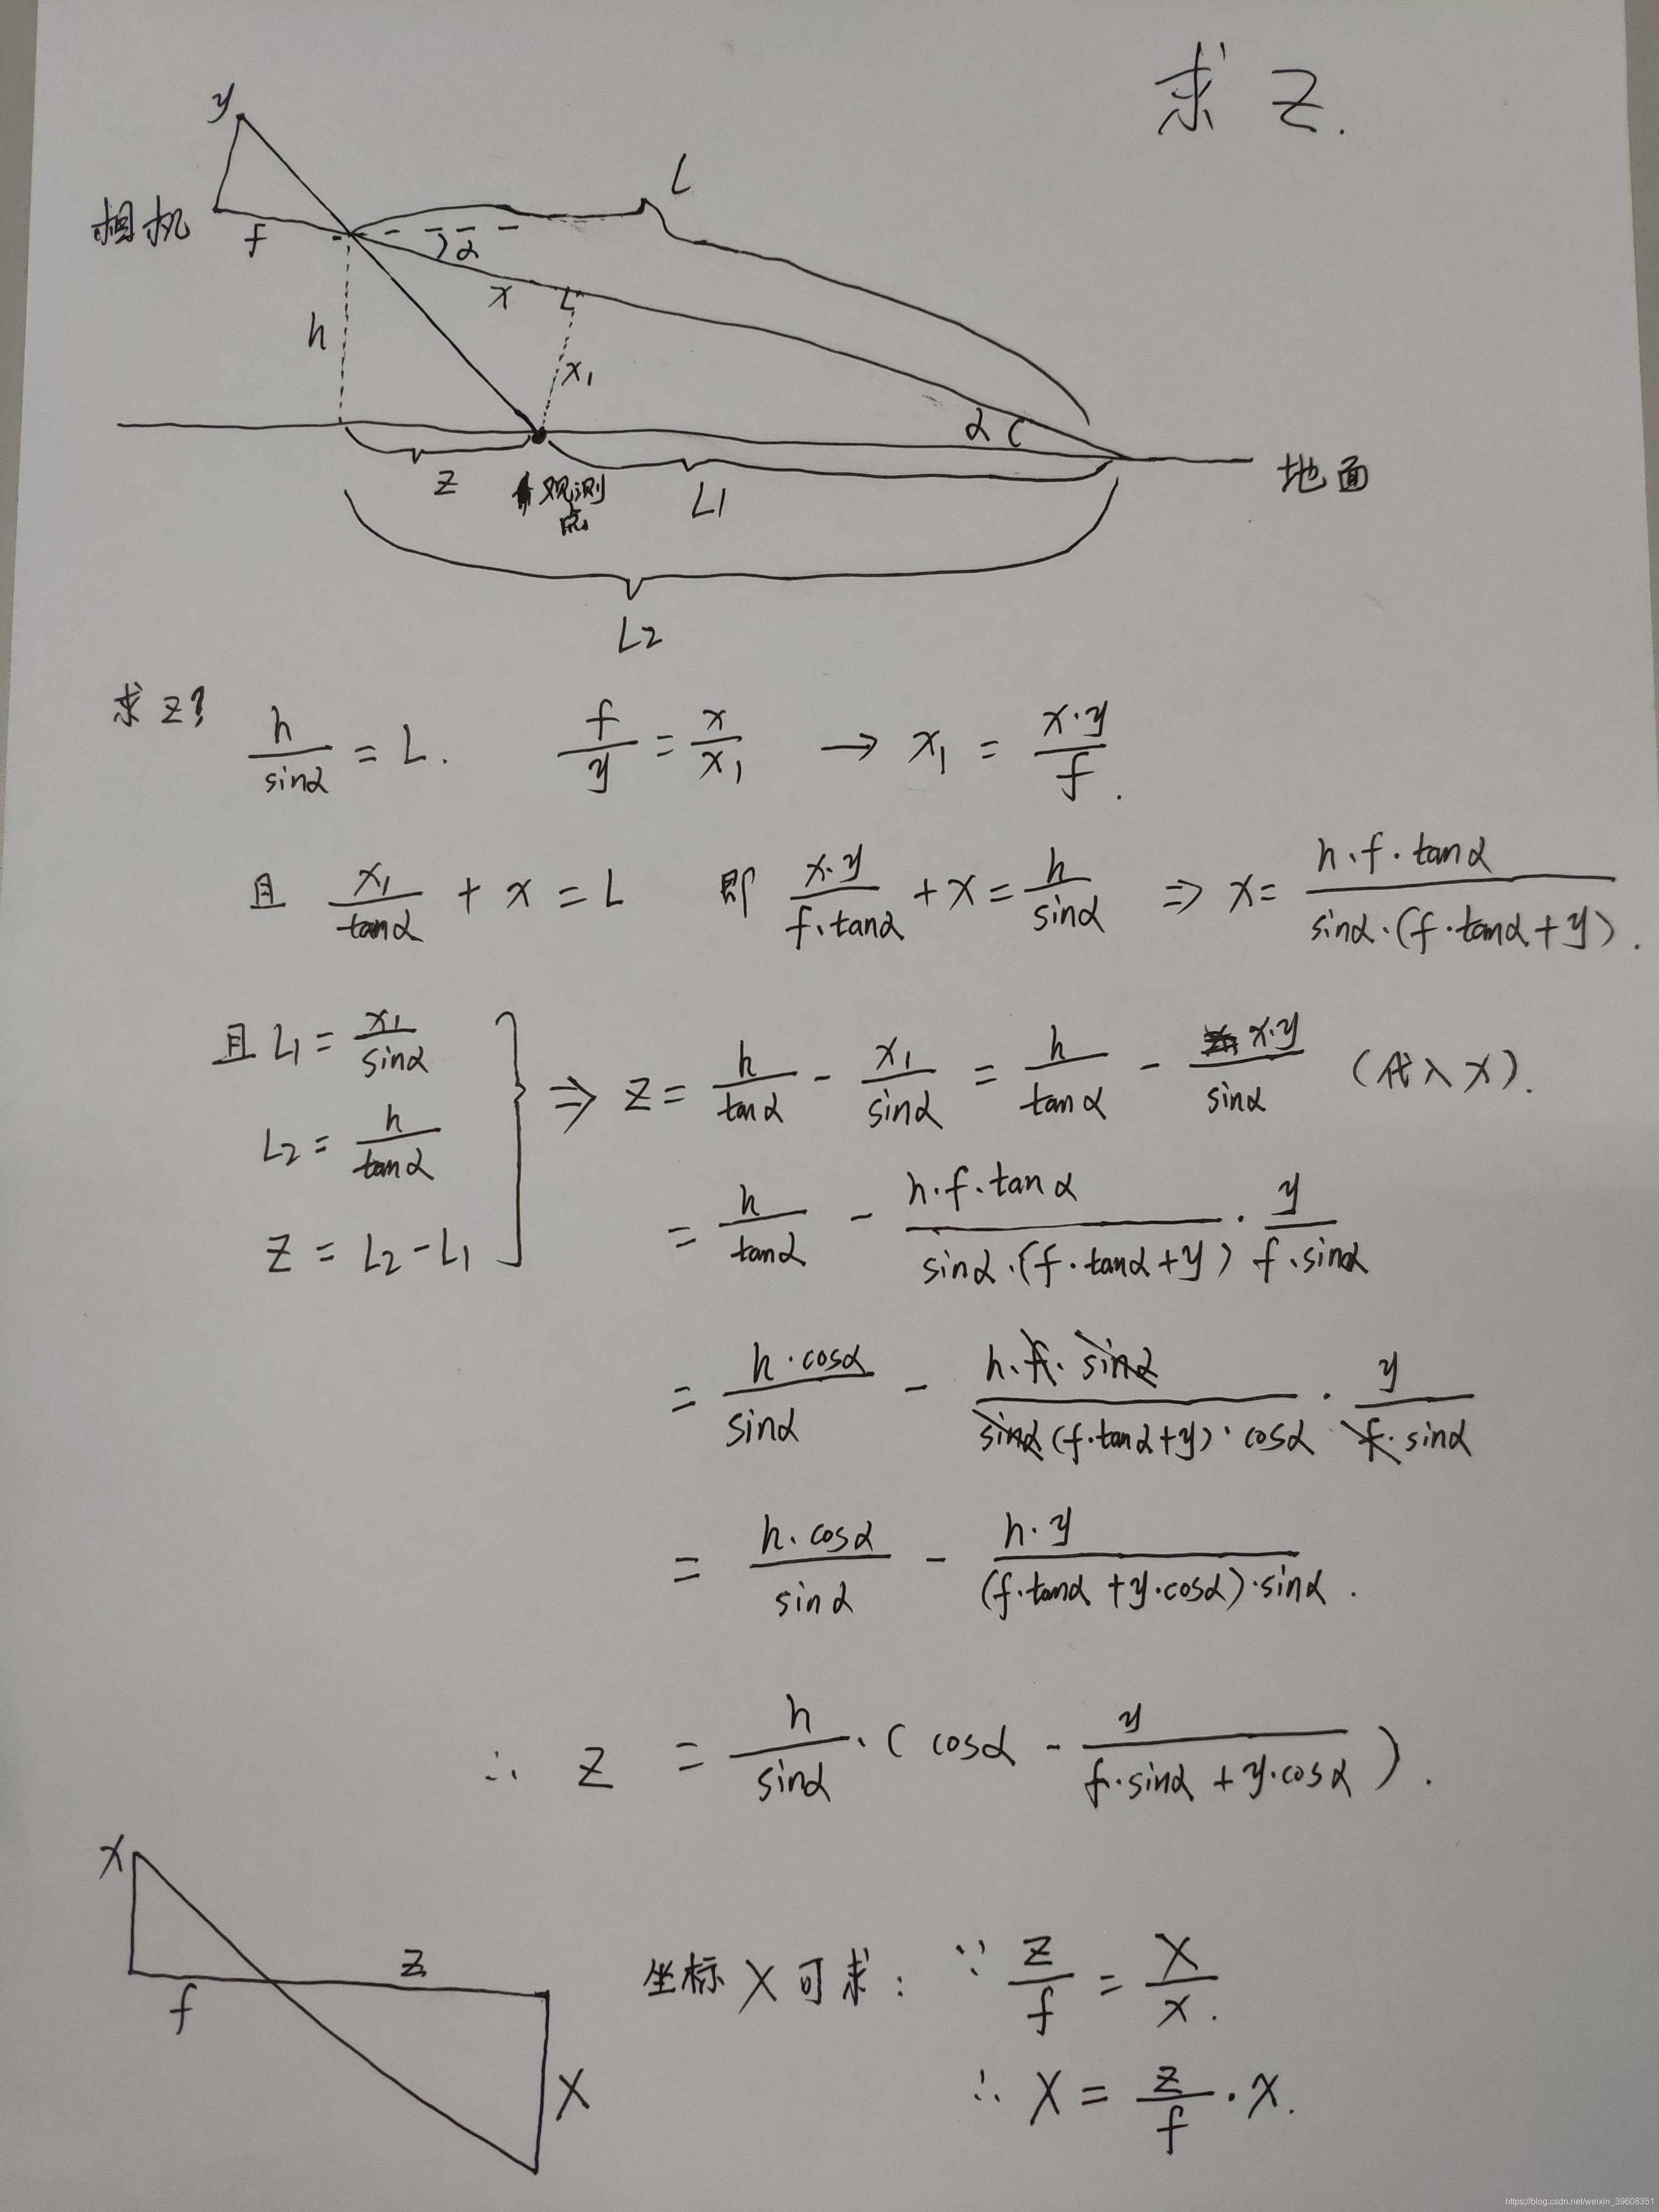 求 Z.
y
L
相机
f
α
x
h
x₁
α
Z
观测点
L1
地面
L2
求 Z?
h/sinα = L. f/y = x/x₁ → x₁ = x·y/f.
且 x₁/tanα + x = L 即 x·y/f·tanα + x = h/sinα ⇒ x = h·f·tanα/sinα·(f·tanα+y).
且 L₁ = x₁/sinα
L₂ = h/tanα
Z = L₂-L₁
⇒ Z = h/tanα - x₁/sinα = h/tanα - x·y/sinα (代入x).
= h/tanα - h·f·tanα/sinα·(f·tanα+y) · y/f·sinα
= h·cosα/sinα - h·f·sinα/sinα(f·tanα+y)·cosα · y/f·sinα
= h·cosα/sinα - h·y/(f·tanα+y·cosα)·sinα.
∴ Z = h/sinα·(cosα - y/f·sinα+y·cosα).
x
Z
f
X
坐标X可求: ∵ Z/f = X/x.
∴ X = Z/f·x.
https://blog.csdn.net/weixin_39608351